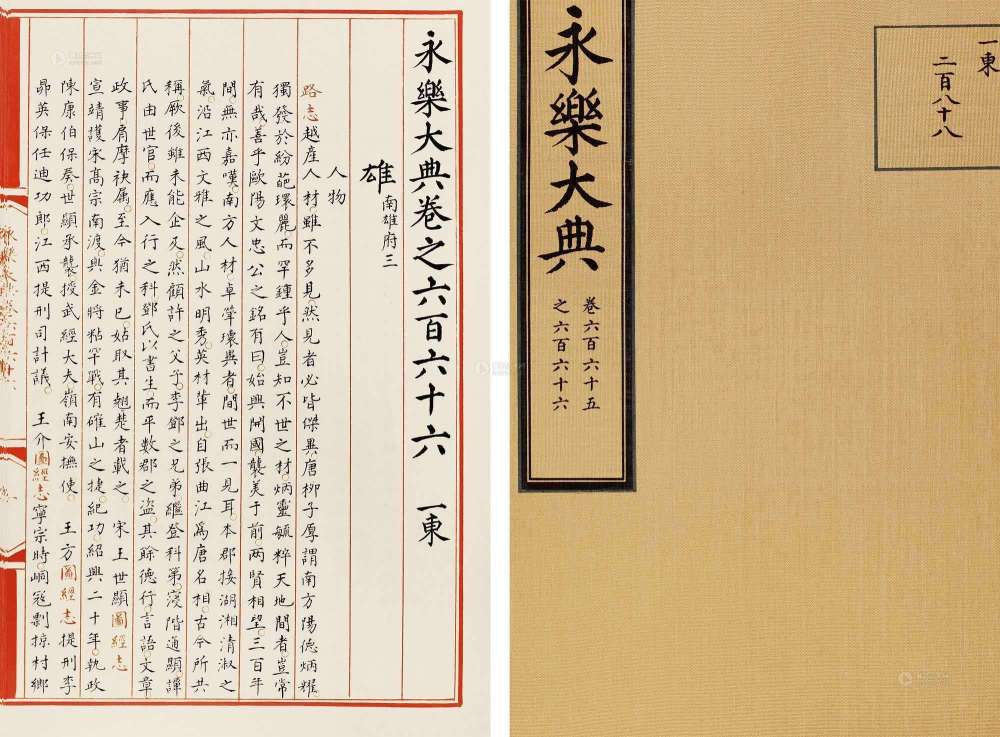 永樂大典卷之六百六十六 一東
雄 南雄府三
人物
路志越産人材雖不多見然見者必皆傑異唐栁子厚謂南方陽德炳耀
獨發於紛葩環麗而罕鍾乎人豈知不世之材炳靈毓粹天地間者豈常
有哉善乎歐陽文忠公之銘有曰始興開國襲美于前兩賢相望三百年
間無亦嘉嘆南方人材卓犖瓌異者間世而一見耳本郡接湖湘清淑之
氣沿江西文雅之風山水明秀英材輩出自張曲江爲唐名相古今所共
稱厥後雖未能企及然顧許之父子李鄧之兄弟繼登科第寖階通顯譚
氏由世官而應入行之科鄧氏以書生而平數郡之盜其餘德行言語文章
政事肩摩袂属至今猶未已姑取其翹楚者載之 宋王世顯圖經志
宣靖護宋髙宗南渡與金將粘罕戰有確山之捷紀功紹興二十年執政
陳康伯保奏世顯承襲授武經大夫嶺南安撫使 王方圖經志提刑李
昴英保任迪功郎江西提刑司計議 王介圖經志寧宗時峒寇剽掠村鄉
永樂大典
卷六百六十五
之六百六十六
一東
二百八十八